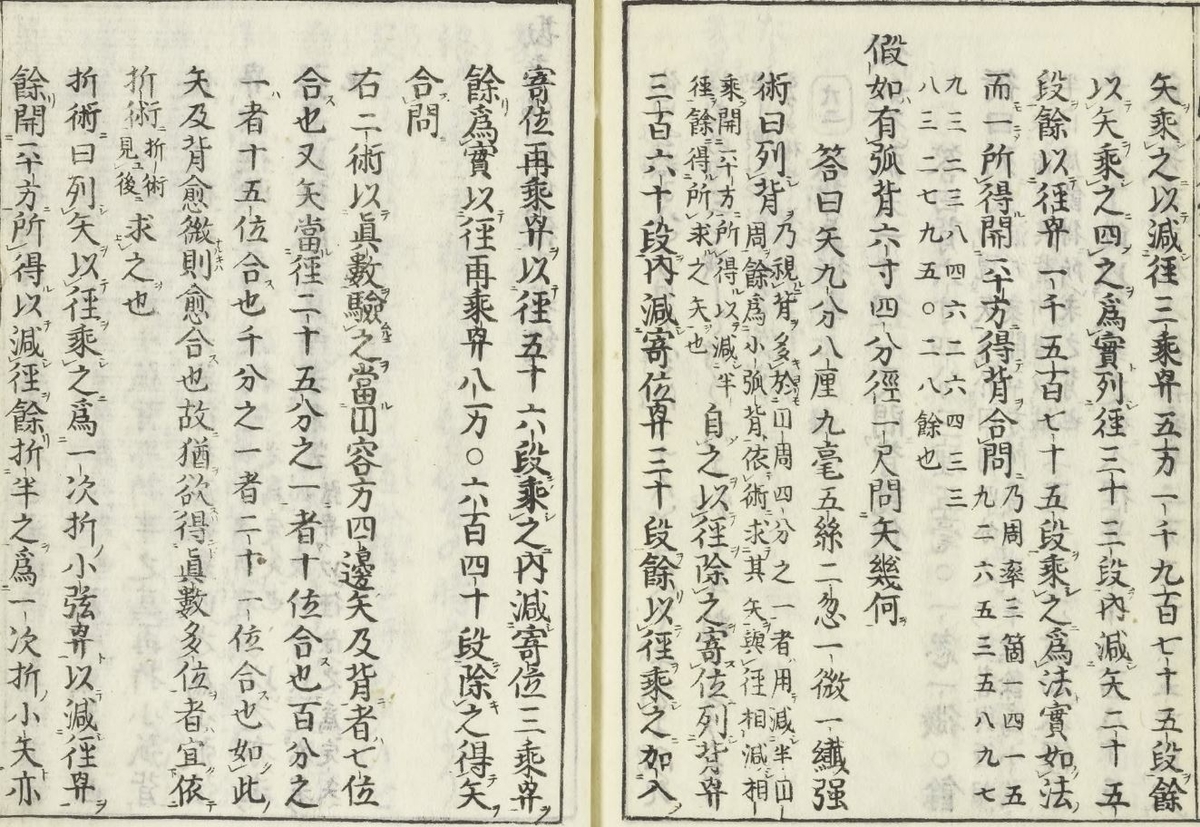 矢乗之以減徑三乗冪五万一千九百七十五段餘
以矢乗之四之爲實列徑三十三段內減矢二十五
段餘以徑冪一千五百七十五段乗之爲法實如法
而一所得開平方得背合問乃周率三箇一四一五九二六五三五八九七
九三二三八四六二六四三三八三二七九五〇二八餘也
假如有弧背六寸四分徑一尺問矢幾何
答曰矢九分八厘九毫五絲二忽一微一纎强
術曰列背乃視背多於囬周四分之一者用減半囬周餘爲小弧背依術求其矢與徑相減相乗開平方所得以減半徑餘得所求之矢也自之以徑除之寄位列背冪
三百六十段內減寄位冪三十段餘以徑乗之加入
寄位再乗冪以徑五十六段乗之內減寄位三乗冪
餘爲實以徑再乗冪八万〇六百四十段除之得矢
合問
右二術以眞數驗之當囬容方四邊矢及背者七位
合也又矢當徑二十五分之一者十位合也百分之
一者十五位合也千分之一者二十一位合也如此
矢及背愈微則愈合也故猶欲得眞數多位者宜依
折術折術見後求之也
折術曰列矢以徑乗之爲一次折小弦冪以減徑冪
餘開平方所得以減徑餘折半之爲一次折小矢亦